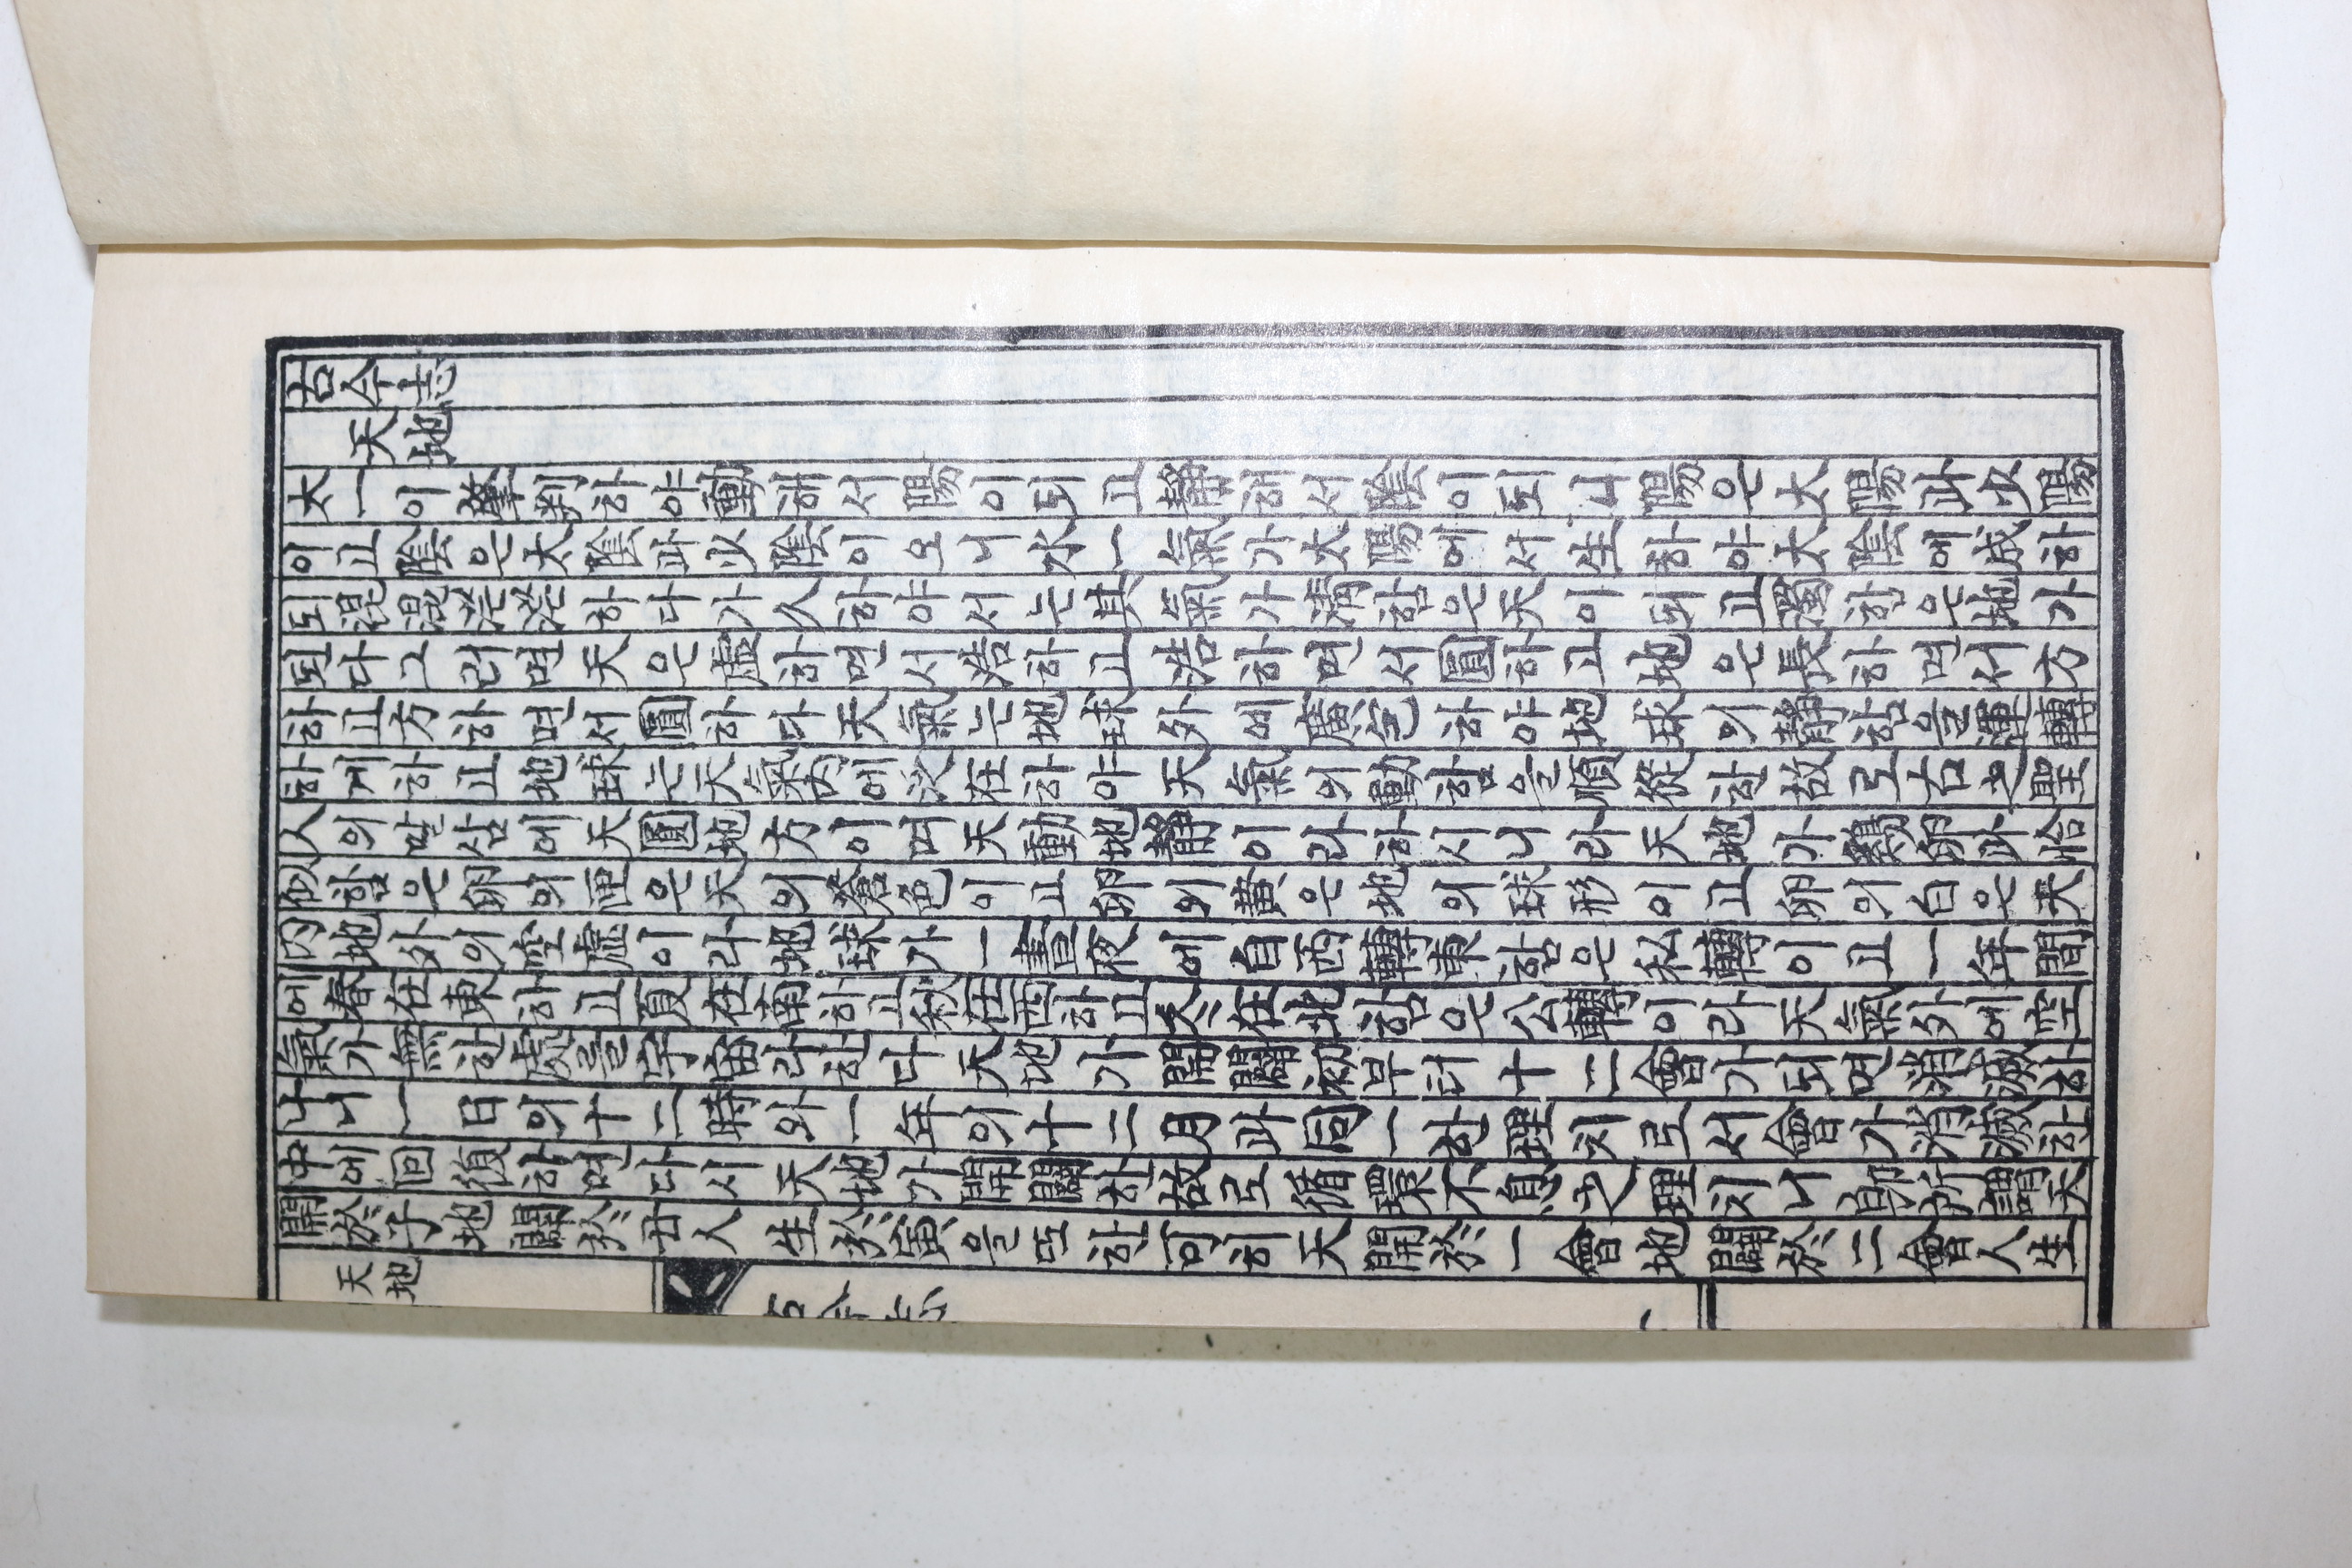 古今志
天地
太一이肇判하야動해서陽이되고靜해서陰이되니陽은太陽과少陽
이고陰은太陰과少陰이오니水一氣가太陽에서生하야太陰에成하
되混混茫茫하다가久하야서는其氣가淸함은天이되고濁함은地가
된다그러면天은虛하면서浩하고浩하면서圓하고地은長하면서方
하고方하면서圓하다天氣는地球外에廣包하야地球의靜함을運轉
하게하고地球는天氣內에泛在하야天氣의動함을順從한故로古之聖
人의말삼에天圓地方이며天動地靜이라하시니라天地가鷄卵과恰
似함은卵의匣은天의蒼色이고卵의黃은地의球形이고卵의白은天
內地外의空虛이라地球가一晝夜에自西轉東함은私轉이고一年間
에春在東하고夏在南하고秋在西하고冬在北함은公轉이라天氣外에空
氣가無한處를宇宙라한다天地가開闢初부터十二會가되면消滅하
나니一日의十二時와一年의十二月과同一한理치로서會가消滅한
中에回復하면다시天地가開闢한故로循環不息之理치니卽所謂天
開於子地闢於丑人生於寅을또한可히天開於一會地闢於二會人生
天地
古今志
一